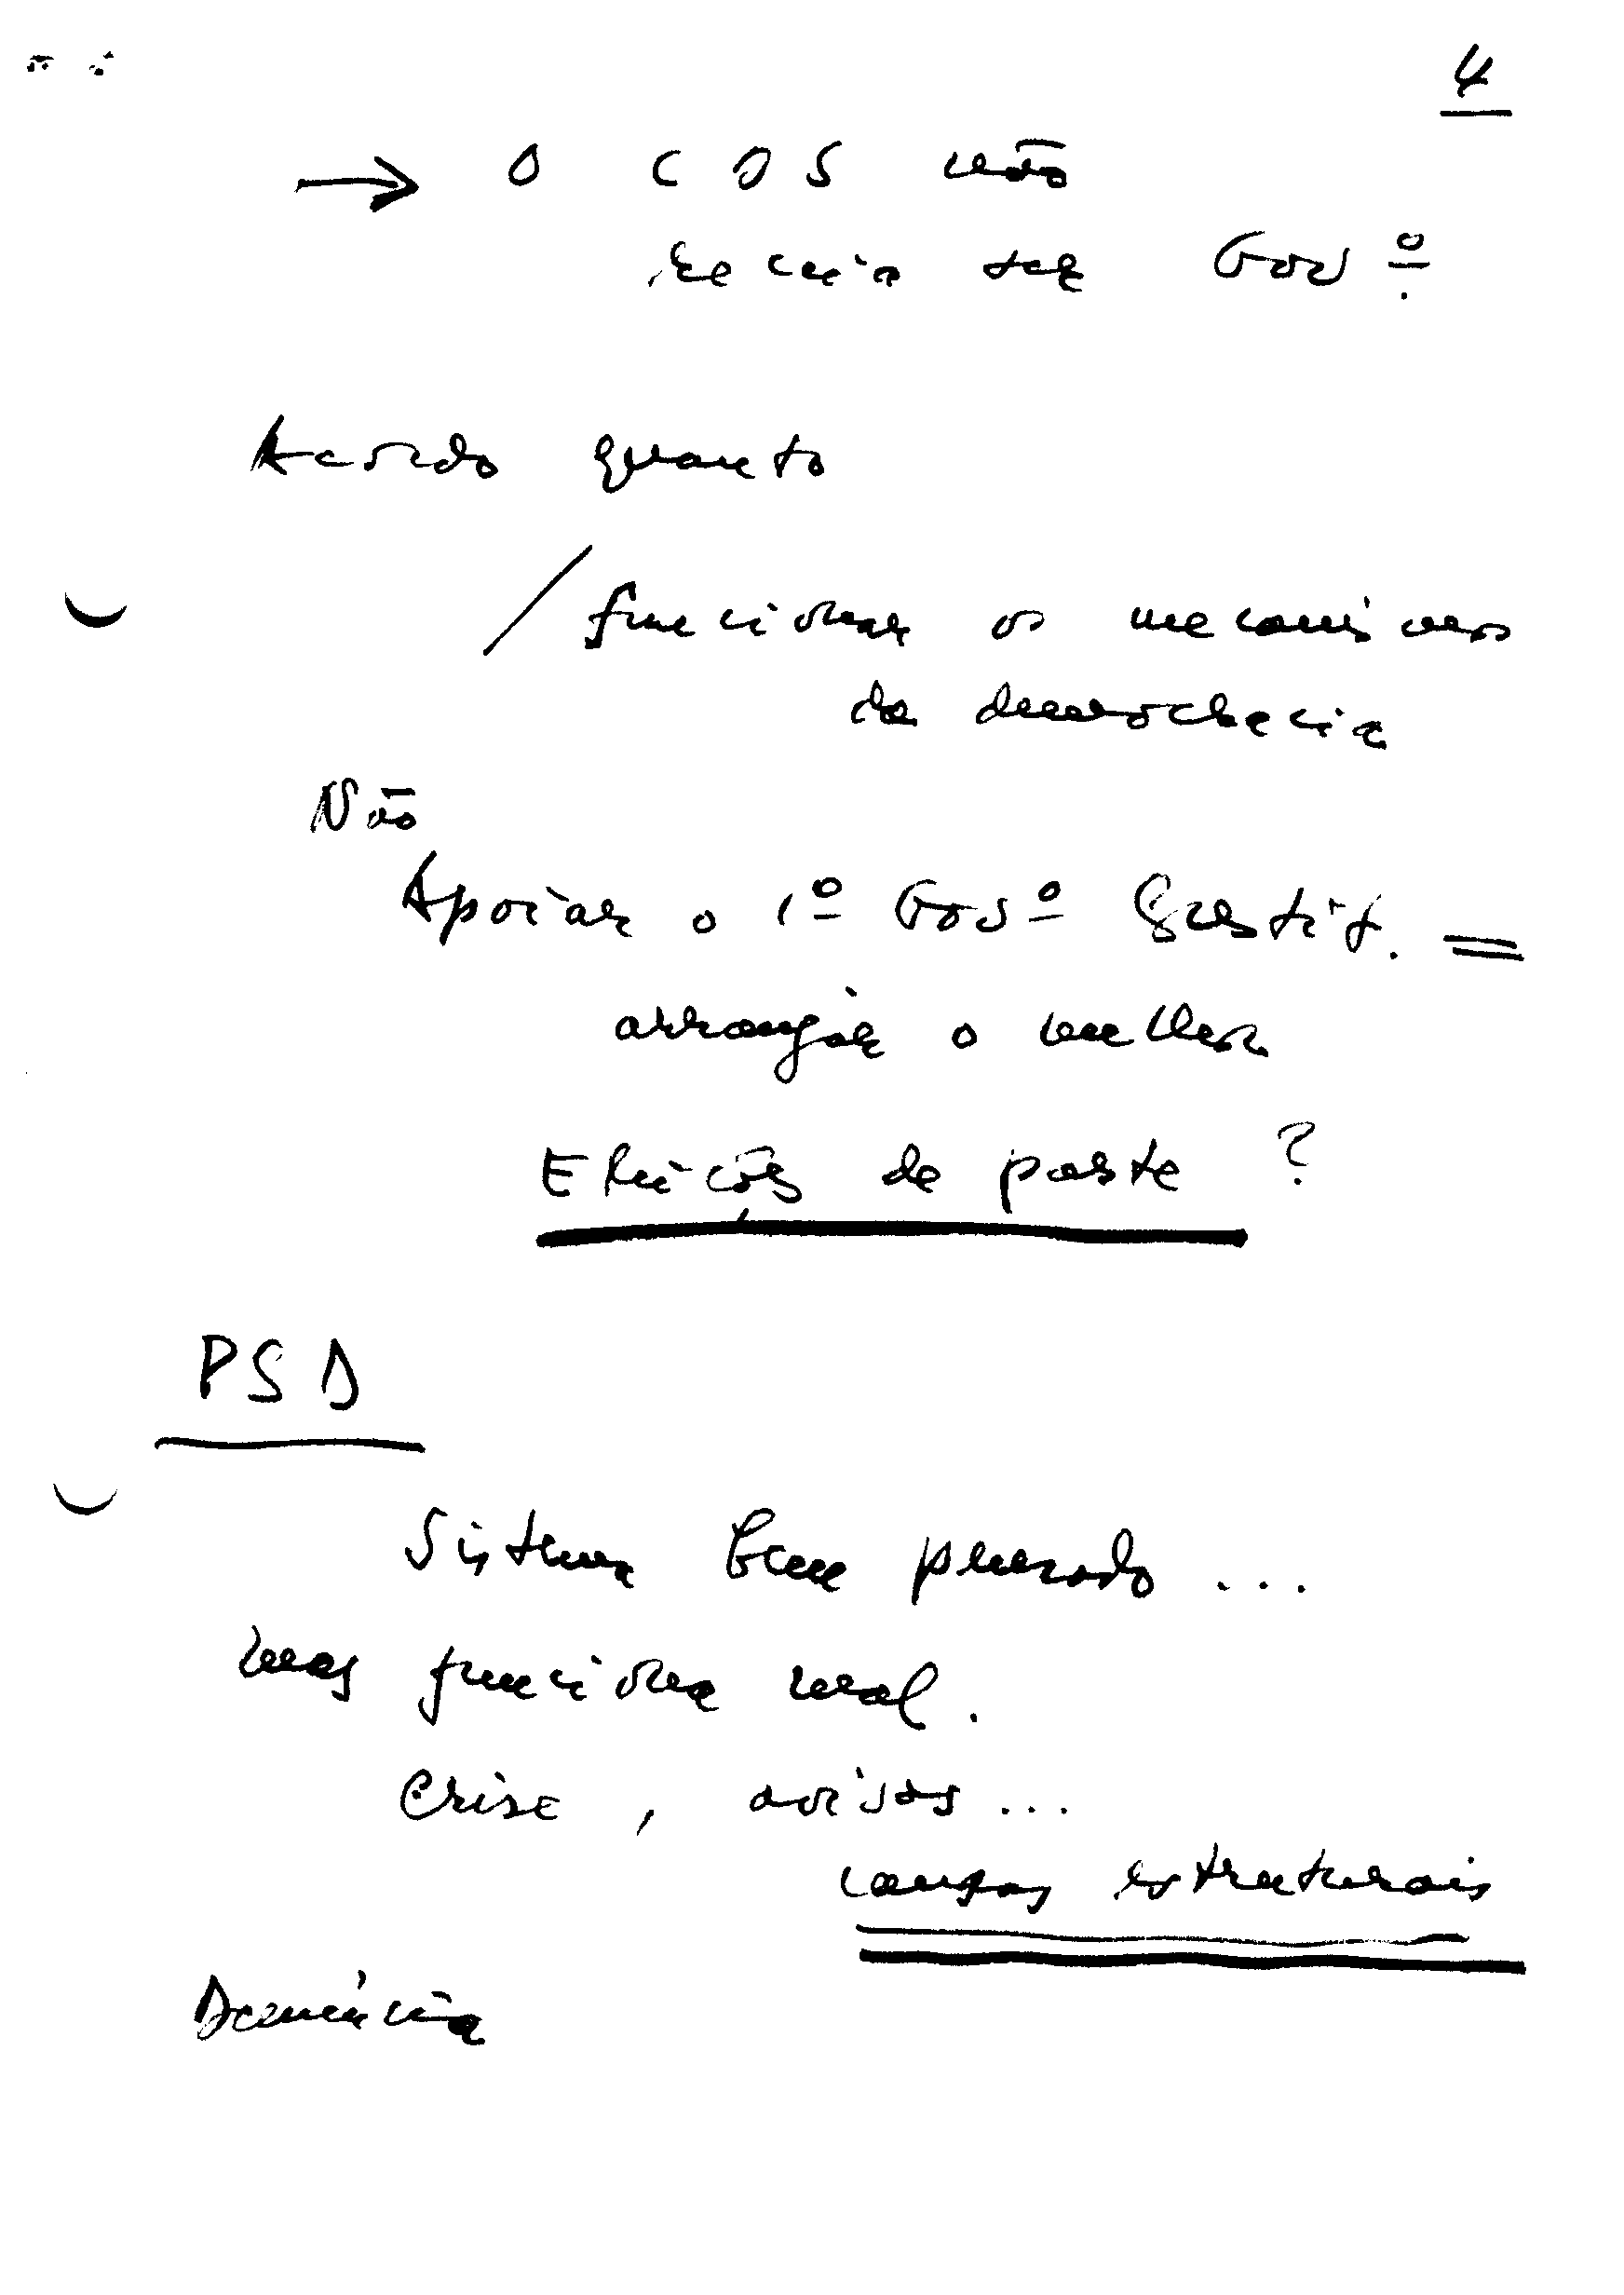 4
→ O CDS não
queria ser Govº.
Acordo quanto
/ funcionar os mecanismos
da democracia
Não
Apoiar o 1º Govº Gestif. =
arranjar o melhor
Eleições de parte ?
PSD
Sistema bem pensado ...
mas funciona mal.
Crise, avisos ...
causas estruturais
Denúncia